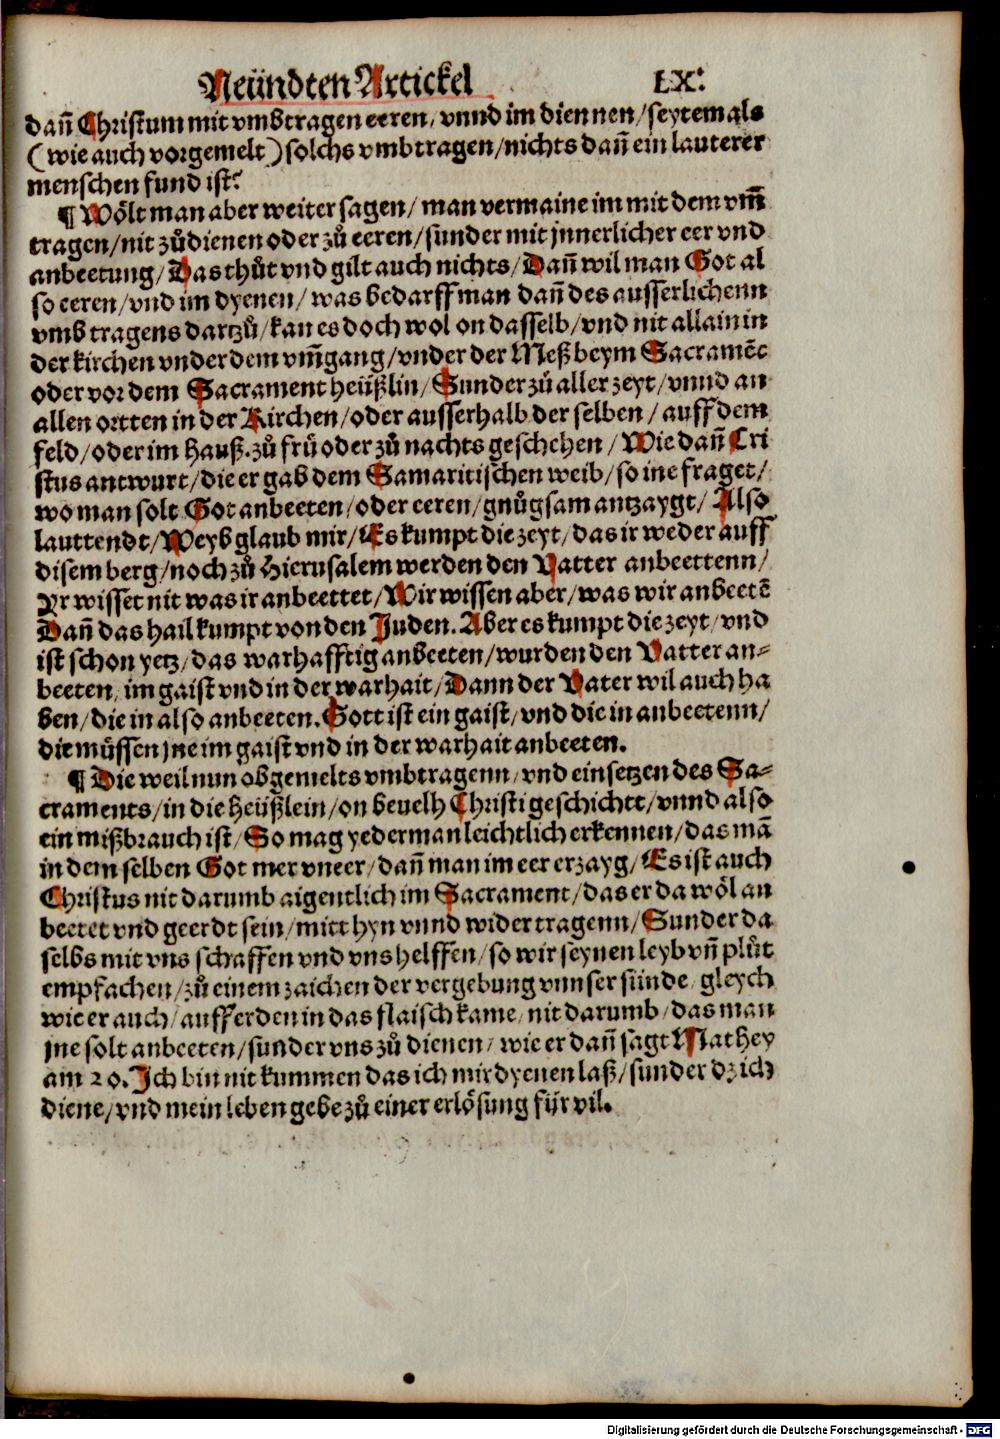 Neündten Artickel LX.
dañ Christum mit vmbtragen eeren/ vnnd im diennen/ seytemals
(wie auch vorgemelt) solchs vmbtragen/ nichts dañ ein lauterer
menschen fund ist?
¶ Wölt man aber weiter sagen/ man vermaine im mit dem vm̃
tragen/ nit zůdienen oder zů eeren/ sunder mit jnnerlicher eer vnd
anbeetung/ Das thůt vnd gilt auch nichts/ Dañ wil man Got al
so eeren/ vnd im dyenen/ was bedarff man dañ des ausserlichenn
vmbtragens dartzů/ kan es doch wol on dasselb/ vnd nit allain in
der kirchen vnder dem vm̃gang/ vnder der Meß beym Sacramēt
oder vor dem Sacrament heüßlin/ Sunder zů aller zeyt/ vnnd an
allen ortten in der Kirchen/ oder ausserhalb der selben/ auff dem
feld/ oder im Hauß. zů frü oder zů nachts geschehen/ Wie dañ Cri
stus antwurt/ die er gab dem Samaritischen weib/ so ine fraget/
wo man solt Got anbeeten/ oder eeren/ gnůgsam antzaygt/ Also
lauttendt/ Weyb glaub mir/ Es kumpt die zeyt/ das ir weder auff
disem berg/ noch zů Hierusalem werden den Vatter anbeettenn/
Yr wisset nit was ir anbeettet/ Wir wissen aber/ was wir anbeetē
Dañ das hail kumpt von den Juden. Aber es kumpt die zeyt/ vnd
ist schon yetz/ das warhafftig anbeeten/ wurden den Vatter an-
beeten/ im gaist vnd in der warhait/ Dann der Vater wil auch ha
ben/ die in also anbeeten. Gott ist ein gaist/ vnd die in anbeetenn/
die müssen jne im gaist vnd in der warhait anbeeten.
¶ Die weil nun obgemelts vmbtragenn/ vnd einsetzen des Sa-
craments/ in die Heüßlein/ on beuelh Christi geschicht/ vnnd also
ein mißbrauch ist/ So mag yederman leichtlich erkennen/ das mā
in dem selben Got mer vneer/ dañ man im eer erzayg/ Es ist auch
Christus nit darumb aigentlich im Sacrament/ das er da wöl an
beetet vnd geerdt sein/ mitt hyn vnnd wider tragenn/ Sunder da
selbs mit vns schaffen vnd vns helffen/ so wir seynen leyb vñ plůt
empfachen/ zů einem zaichen der vergebung vnnser sünde/ gleych
wie er auch/ auff erden in das flaisch kame/ nit darumb/ das man
jne solt anbeeten/ sunder vns zů dienen/ wie er dañ sagt Mathey
am 20. Ich bin nit kummen das ich mir dyenen laß/ sunder dz ich
diene/ vnd mein leben gebe zů einer erlösung für vil.
Digitalisierung gefördert durch die Deutsche Forschungsgemeinschaft - DFG